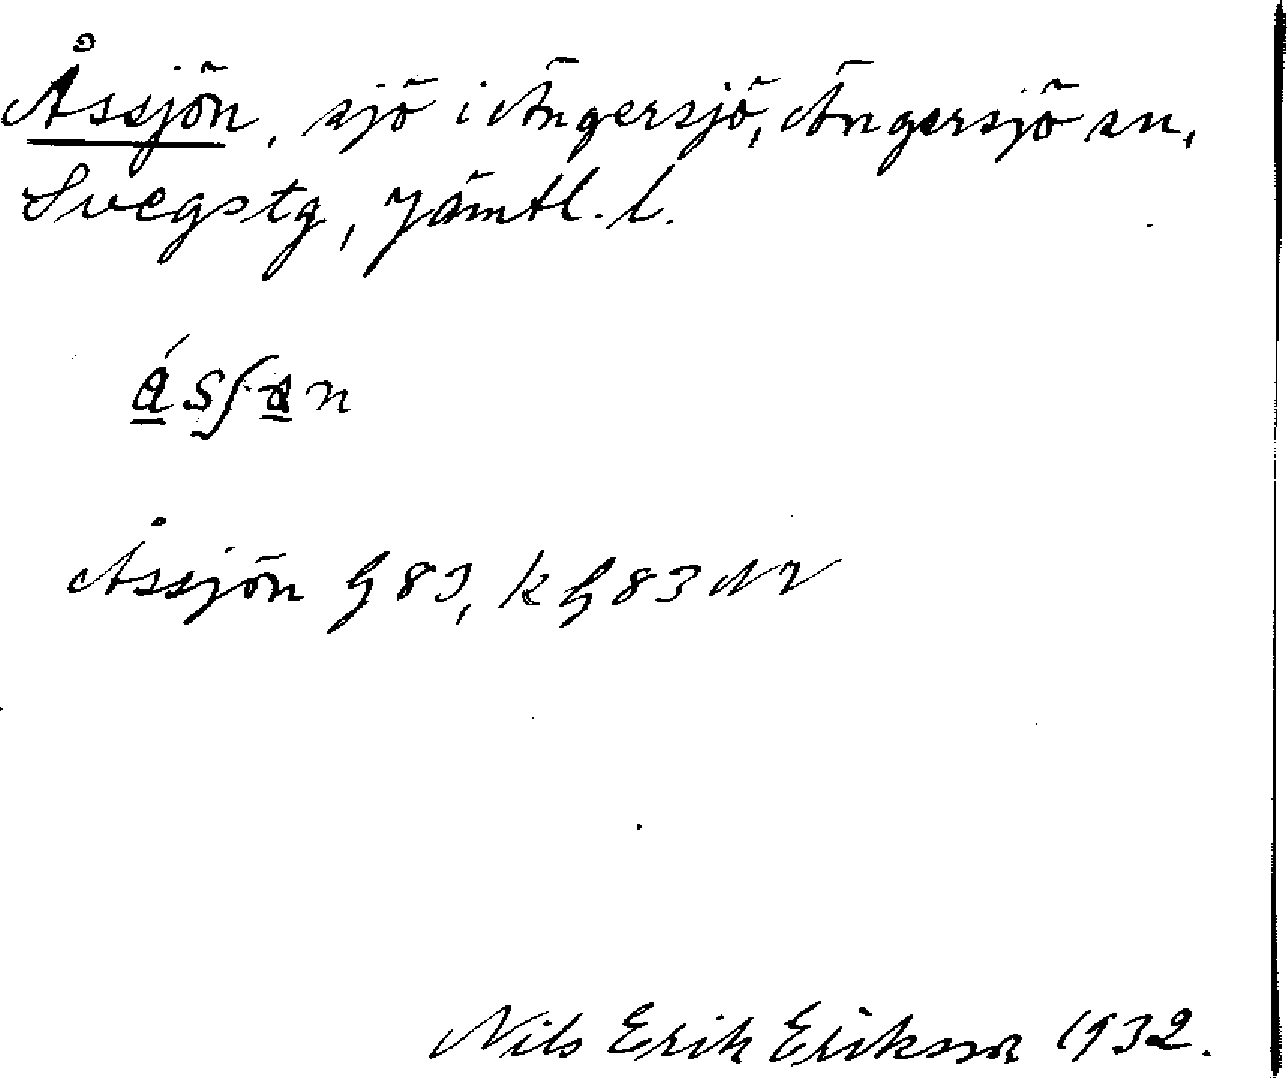 Åssjön, sjö i Ängersjö, Ängersjö sn,
Svegstg, Jämtl. l.
Åssjön G 83, k G 83 NV
Nils Erik Eriksson 1932.